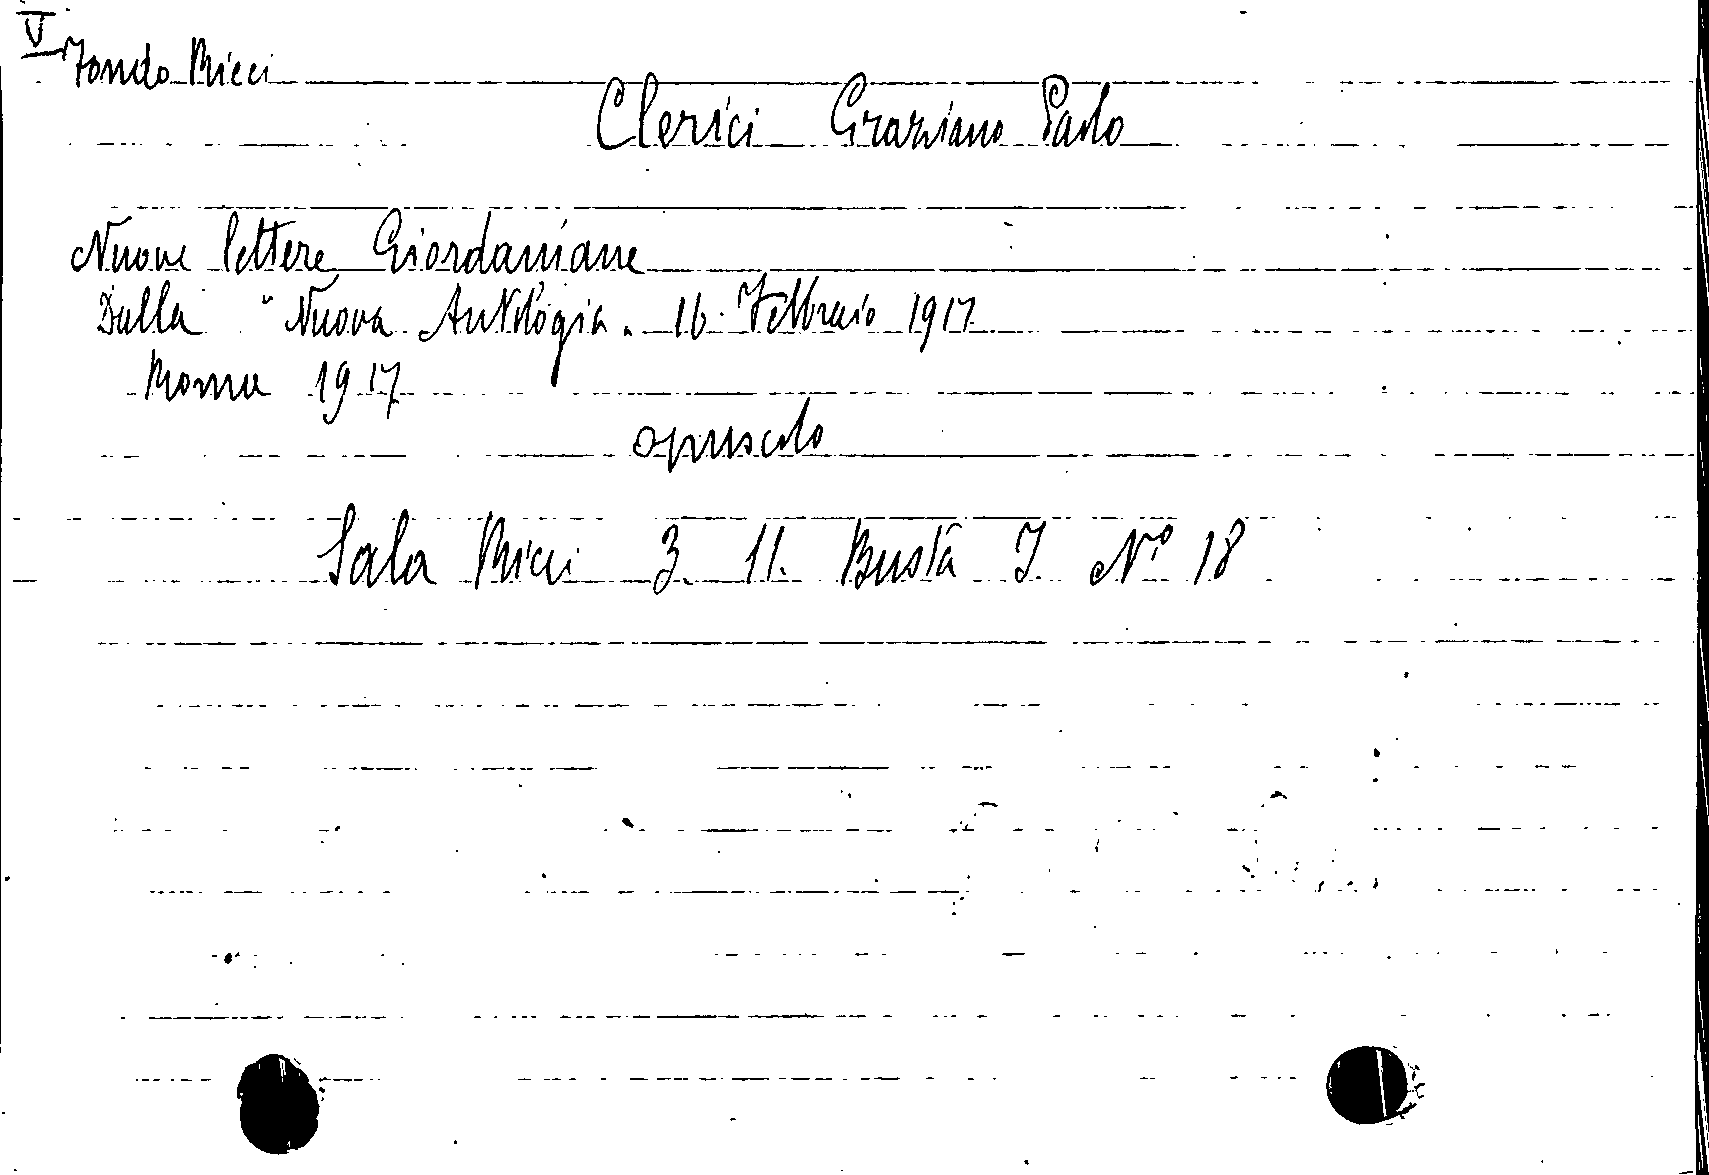 V
Fondo Ricci
Clerici Graziano Paolo
Nuove lettere Giordaniane
Dalla "Nuova Antologia. 16. Febbraio 1917
Roma 1917
opuscolo
Sala Ricci 3. 11. Busta I Nº 18